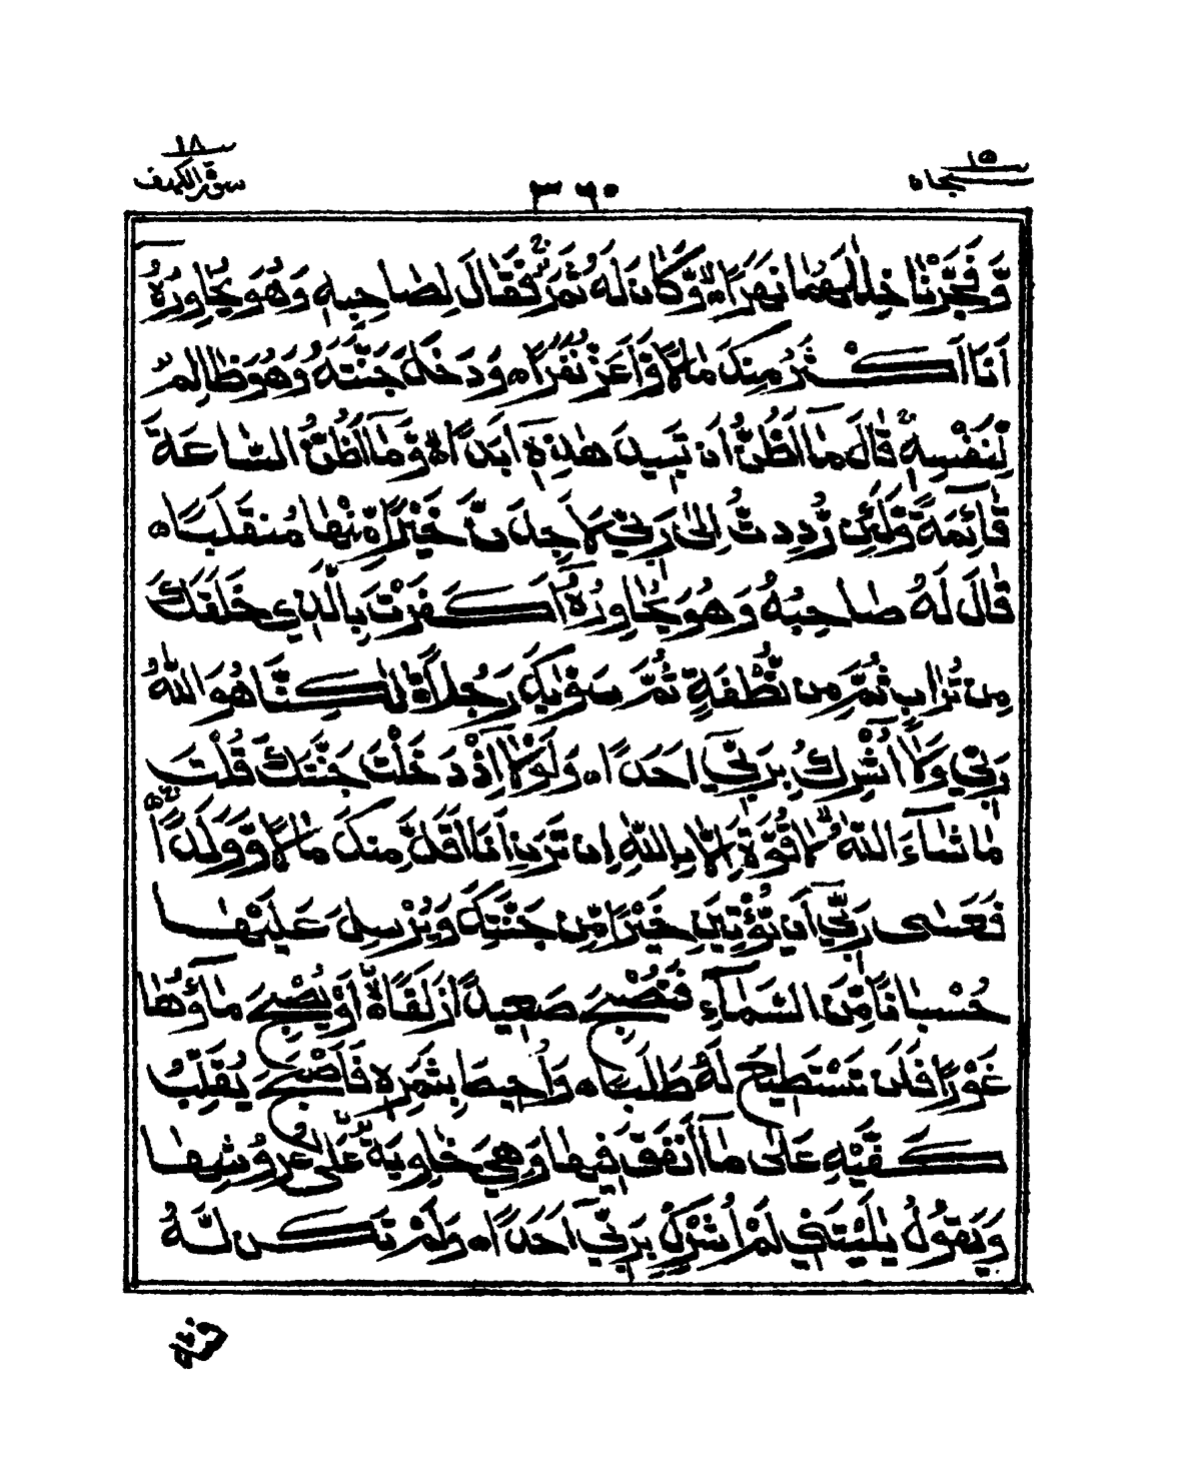 ١٥
سبحان
٣٦٠
١٨
سورة الكهف
وَّفَجَّرْنَا خِلٰلَهُمَا نَهَرًا ۙ وَّكَانَ لَهٗ ثَمَرٌ ۚ فَقَالَ لِصَاحِبِهٖ وَهُوَ يُحَاوِرُهٗٓ
اَنَا اَكْثَرُ مِنْكَ مَالًا وَّاَعَزُّ نَفَرًا ۝ وَدَخَلَ جَنَّتَهٗ وَهُوَ ظَالِمٌ
لِّنَفْسِهٖ ۚ قَالَ مَآ اَظُنُّ اَنْ تَبِيْدَ هٰذِهٖٓ اَبَدًا ۙ وَّمَآ اَظُنُّ السَّاعَةَ
قَآئِمَةً وَّلَئِنْ رُّدِدْتُّ اِلٰى رَبِّيْ لَاَجِدَنَّ خَيْرًا مِّنْهَا مُنْقَلَبًا ۝
قَالَ لَهٗ صَاحِبُهٗ وَهُوَ يُحَاوِرُهٗٓ اَكَفَرْتَ بِالَّذِيْ خَلَقَكَ
مِنْ تُرَابٍ ثُمَّ مِنْ نُّطْفَةٍ ثُمَّ سَوّٰىكَ رَجُلًا ۙ لٰكِنَّا۠ هُوَ اللّٰهُ
رَبِّيْ وَلَآ اُشْرِكُ بِرَبِّيْٓ اَحَدًا ۝ وَلَوْلَآ اِذْ دَخَلْتَ جَنَّتَكَ قُلْتَ
مَا شَآءَ اللّٰهُ ۙ لَا قُوَّةَ اِلَّا بِاللّٰهِ اِنْ تَرَنِ اَنَا اَقَلَّ مِنْكَ مَالًا وَّوَلَدًا
فَعَسٰى رَبِّيْٓ اَنْ يُّؤْتِيَنِ خَيْرًا مِّنْ جَنَّتِكَ وَيُرْسِلَ عَلَيْهَا
حُسْبَانًا مِّنَ السَّمَآءِ فَتُصْبِحَ صَعِيْدًا زَلَقًا ۙ اَوْ يُصْبِحَ مَآؤُهَا
غَوْرًا فَلَنْ تَسْتَطِيْعَ لَهٗ طَلَبًا ۝ وَاُحِيْطَ بِثَمَرِهٖ فَاَصْبَحَ يُقَلِّبُ
كَفَّيْهِ عَلٰى مَآ اَنْفَقَ فِيْهَا وَهِيَ خَاوِيَةٌ عَلٰى عُرُوْشِهَا
وَيَقُوْلُ يٰلَيْتَنِيْ لَمْ اُشْرِكْ بِرَبِّيْٓ اَحَدًا ۝ وَلَمْ تَكُنْ لَّهٗ
فئة